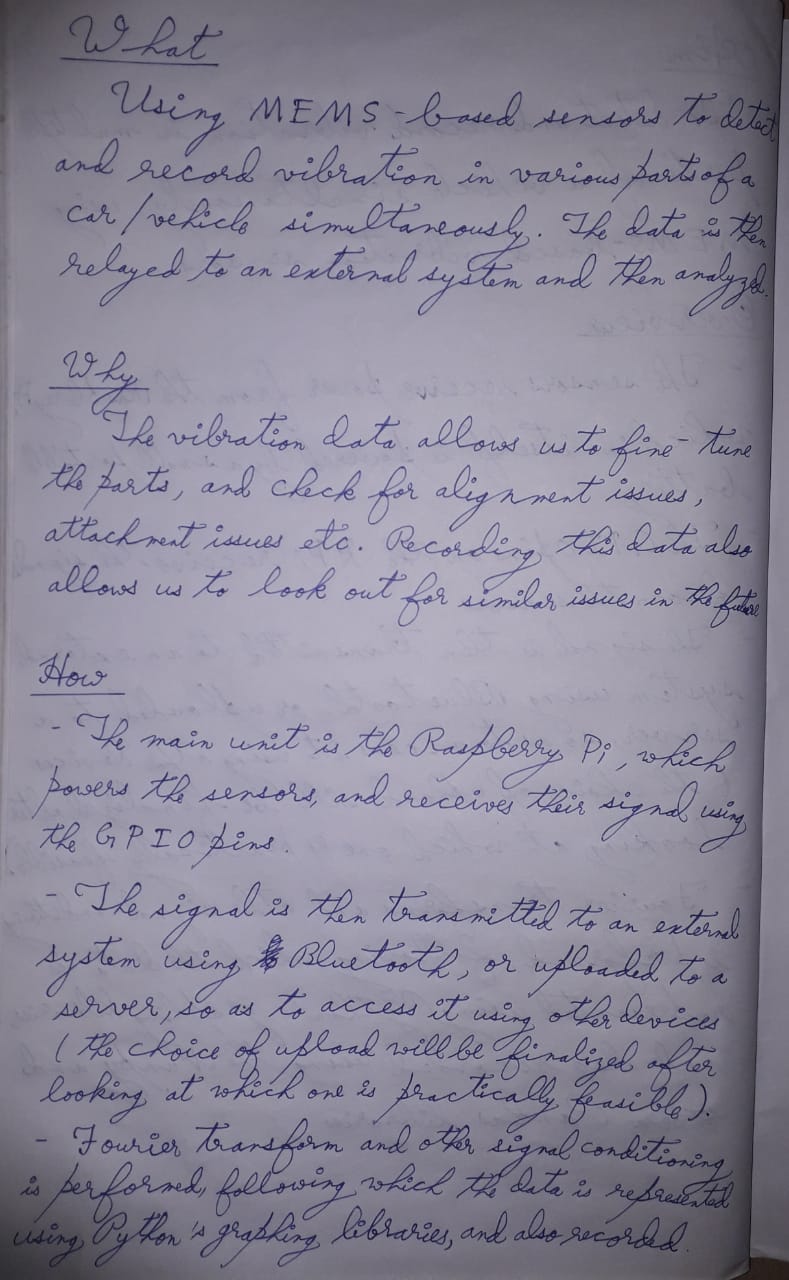 What
Using MEMS-based sensors to detect
and record vibration in various parts of a
car/vehicle simultaneously. The data is then
relayed to an external system and then analyzed.
Why
The vibration data allows us to fine-tune
the parts, and check for alignment issues,
attachment issues etc. Recording this data also
allows us to look out for similar issues in the future
How
- The main unit is the Raspberry Pi, which
powers the sensors, and receives their signal using
the GPIO pins.
- The signal is then transmitted to an external
system using Bluetooth, or uploaded to a
server, so as to access it using other devices
(the choice of upload will be finalized after
looking at which one is practically feasible).
- Fourier transform and other signal conditioning
is performed, following which the data is represented
using Python's graphing libraries, and also recorded.